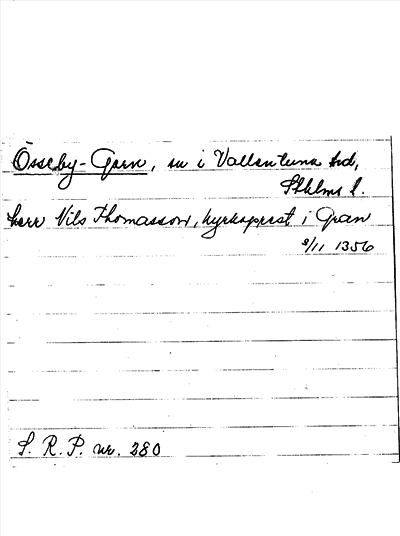 Össeby-Garn, sn i Vallentuna hd,
Sthlms l.
herr Nils Thomasson, kyrkoprest i Gran
9/11 1356
S. R. P. nr. 280